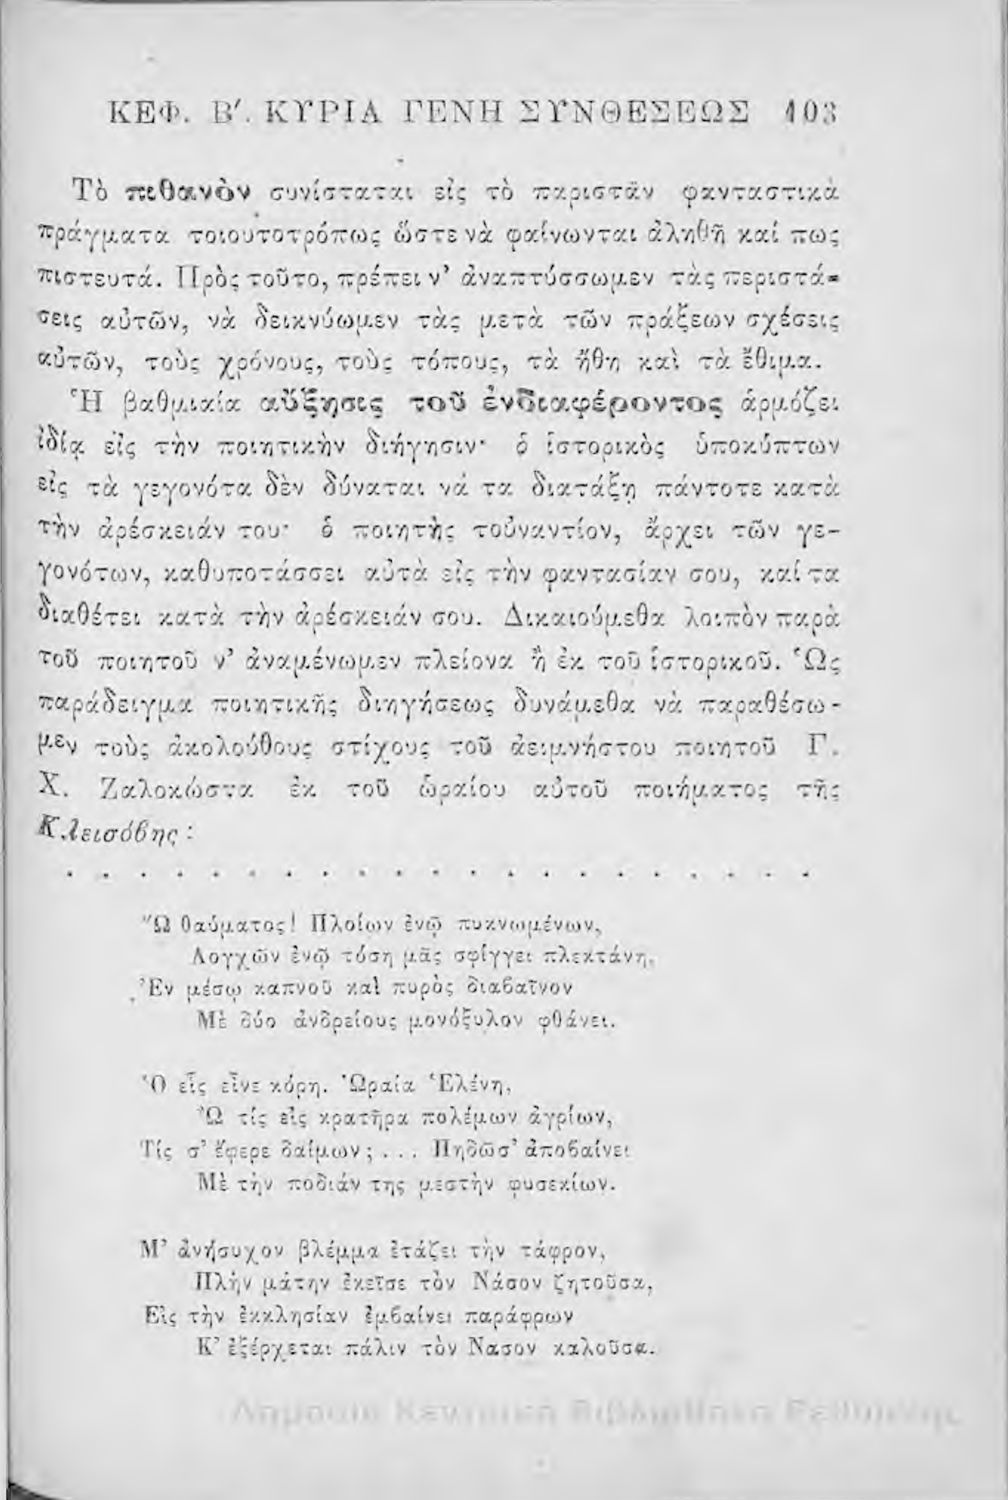 ΚΕΦ. Β′. ΚΥΡΙΑ ΓΕΝΗ ΣΥΝΘΕΣΕΩΣ 103
Τὸ πιθανὸν συνίσταται εἰς τὸ παριστᾶν φανταστικὰ
πράγματα τοιουτοτρόπως ὥστε νὰ φαίνωνται ἀληθῆ καί πως
πιστευτά. Πρὸς τοῦτο, πρέπει ν’ ἀναπτύσσωμεν τὰς περιστά-
σεις αὐτῶν, νὰ δεικνύωμεν τὰς μετὰ τῶν πράξεων σχέσεις
αὐτῶν, τοὺς χρόνους, τοὺς τόπους, τὰ ἤθη καὶ τὰ ἔθιμα.
Ἡ βαθμιαία αὔξησις τοῦ ἐνδιαφέροντος ἁρμόζει
ἰδίᾳ εἰς τὴν ποιητικὴν διήγησιν· ὁ ἱστορικὸς ὑποκύπτων
εἰς τὰ γεγονότα δὲν δύναται νά τα διατάξῃ πάντοτε κατὰ
τὴν ἀρέσκειάν του· ὁ ποιητὴς τοὐναντίον, ἄρχει τῶν γε-
γονότων, καθυποτάσσει αὐτὰ εἰς τὴν φαντασίαν σου, καί τα
διαθέτει κατὰ τὴν ἀρέσκειάν σου. Δικαιούμεθα λοιπὸν παρὰ
τοῦ ποιητοῦ ν’ ἀναμένωμεν πλείονα ἢ ἐκ τοῦ ἱστορικοῦ. Ὡς
παράδειγμα ποιητικῆς διηγήσεως δυνάμεθα νὰ παραθέσω-
μεν τοὺς ἀκολούθους στίχους τοῦ ἀειμνήστου ποιητοῦ Γ.
Χ. Ζαλοκώστα ἐκ τοῦ ὡραίου αὐτοῦ ποιήματος τῆς
Κλεισόβης :
. . . . . . . . . . . . . . . . . . . . .
Ὢ θαύματος! Πλοίων ἐνῷ πυκνωμένων,
Λογχῶν ἐνῷ τόση μᾶς σφίγγει πλεκτάνη,
Ἐν μέσῳ καπνοῦ καὶ πυρὸς διαβαῖνον
Μὲ δύο ἀνδρείους μονόξυλον φθάνει.
Ὁ εἷς εἶνε κόρη. Ὡραία Ἑλένη,
Ὢ τίς εἰς κρατῆρα πολέμων ἀγρίων,
Τίς σ’ ἔφερε δαίμων ; . . . Πηδῶσ’ ἀποβαίνει
Μὲ τὴν ποδιάν της μεστὴν φυσεκίων.
Μ’ ἀνήσυχον βλέμμα ἐτάζει τὴν τάφρον,
Πλὴν μάτην ἐκεῖσε τὸν Νάσον ζητοῦσα,
Εἰς τὴν ἐκκλησίαν ἐμβαίνει παράφρων
Κ’ ἐξέρχεται πάλιν τὸν Νασον καλοῦσα.
Δημόσια Κεντρική Βιβλιοθήκη Ρεθύμνης